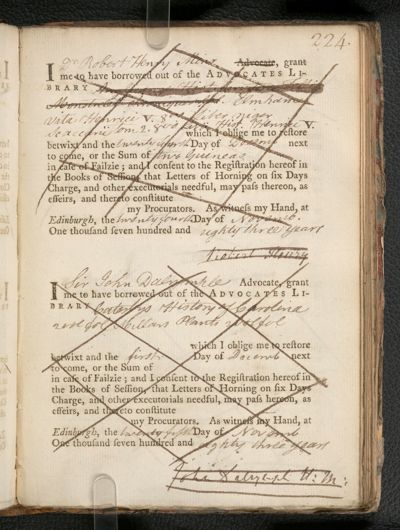 224.
I Dr Robert Henry Minr Advocate, grant
me to have borrowed out of the ADVOCATES LI-
BRARY
Elmham
Vita Henrici V. 8vo liber niger
Scaccarii tom. 2. 8vo Henrici V.
which I oblige me to restore
betwixt and the twenty fourth Day of Decemr next
to come, or the Sum of two Guineas
in case of Failzie; and I consent to the Registration hereof in
the Books of Session, that Letters of Horning on six Days
Charge, and other executorials needful, may pass thereon, as
effeirs, and thereto constitute
my Procurators. As witness my Hand, at
Edinburgh, the twenty fourth Day of Novemb.
One thousand seven hundred and eighty three years
Robert Henry
I Sir John Dalrymple Advocate, grant
me to have borrowed out of the ADVOCATES LI-
BRARY Catesbys History of Carolina
2 vol fol Millars Plants 2 vol fol
which I oblige me to restore
betwixt and the first Day of Decemb next
to come, or the Sum of
in case of Failzie; and I consent to the Registration hereof in
the Books of Session, that Letters of Horning on six Days
Charge, and other executorials needful, may pass hereon, as
effeirs, and thereto constitute
my Procurators. As witness my Hand, at
Edinburgh, the twenty fifth Day of Novemb
One thousand seven hundred and eighty three years
John Dalrymple H: M: